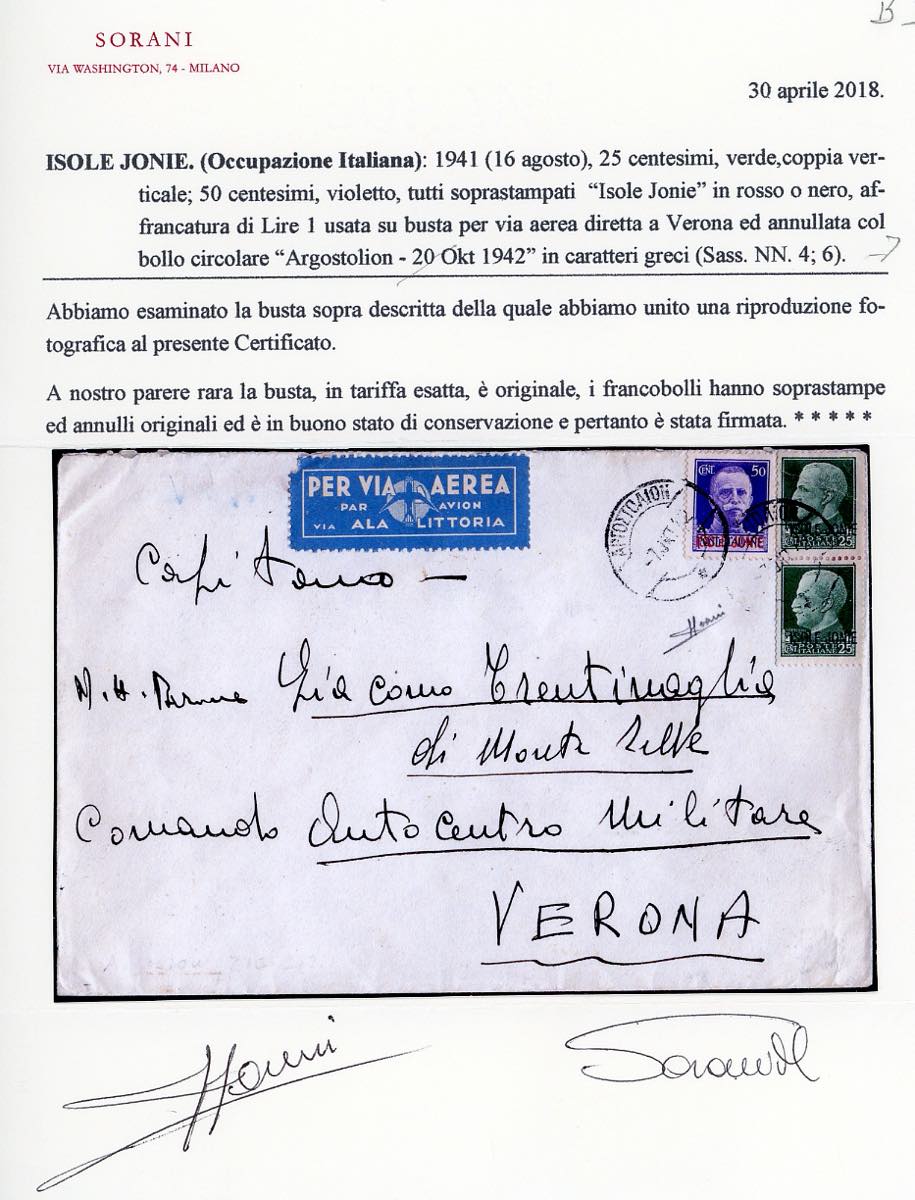 B
SORANI
VIA WASHINGTON, 74 - MILANO
30 aprile 2018.
ISOLE JONIE. (Occupazione Italiana): 1941 (16 agosto), 25 centesimi, verde,coppia ver-
ticale; 50 centesimi, violetto, tutti soprastampati “Isole Jonie” in rosso o nero, af-
francatura di Lire 1 usata su busta per via aerea diretta a Verona ed annullata col
bollo circolare “Argostolion - 20 Okt 1942” in caratteri greci (Sass. NN. 4; 6).
Abbiamo esaminato la busta sopra descritta della quale abbiamo unito una riproduzione fo-
tografica al presente Certificato.
A nostro parere rara la busta, in tariffa esatta, è originale, i francobolli hanno soprastampe
ed annulli originali ed è in buono stato di conservazione e pertanto è stata firmata. * * * * *
PER VIA AEREA
PAR AVION
VIA ALA LITTORIA
CENT. 50
ISOLE JONIE
ΑΡΓΟΣΤΟΛΙΟΝ
ISOLE JONIE
POSTE
ITALIANE 25
ISOLE JONIE
POSTE
ITALIANE 25
Capitano —
N. H. Giacomo Trentimaglia
di Monte
Comando Autocentro Militare
VERONA
Sorani